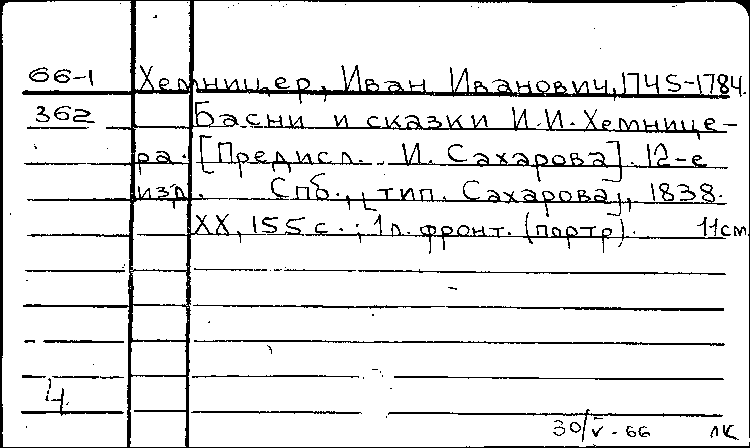 66-1 Хемницер, Иван Иванович, 1745-1784.
362 Басни и сказки И.И. Хемнице-
ра. [Предисл. И. Сахарова]. 12-е
изд. Спб., [тип. Сахарова], 1838.
XX, 155 с.; 1 л. фронт. (портр). 11 см
4
30/V-66 ЛК